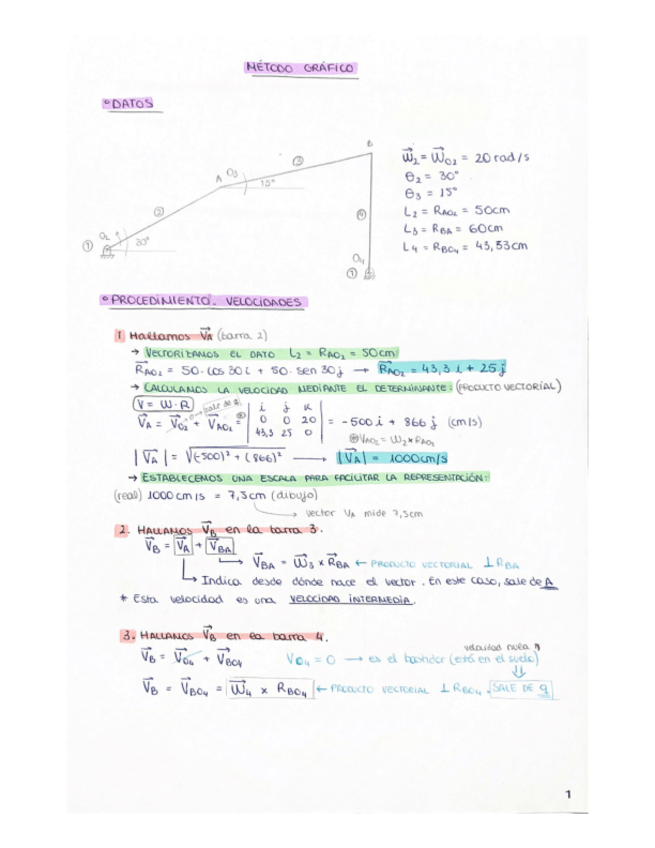 MÉTODO GRÁFICO
° DATOS
B
A
O3
③
15°
②
④
O2
①
30°
O4
①
W⃗2 = W⃗O2 = 20 rad/s
θ2 = 30°
θ3 = 15°
L2 = RAO2 = 50cm
L3 = RBA = 60cm
L4 = RBO4 = 43,53cm
° PROCEDIMIENTO. VELOCIDADES
1 Hallamos V⃗A (barra 2)
→ VECTORIZAMOS EL DATO L2 = RAO2 = 50cm
R⃗AO2 = 50·cos 30 i + 50·sen 30 j → R⃗AO2 = 43,3 i + 25 j
→ CALCULAMOS LA VELOCIDAD MEDIANTE EL DETERMINANTE: (PRODUCTO VECTORIAL)
V = W·R
sale de q
V⃗A = V⃗O2 + V⃗AO2 = | i j k | 0 0 20 | 43,3 25 0 | = -500 i + 866 j (cm/s)
VAO2 = W2 × RAO2
|V⃗A| = √(-500)² + (866)² → |V⃗A| = 1000cm/s
→ ESTABLECEMOS UNA ESCALA PARA FACILITAR LA REPRESENTACIÓN:
(real) 1000 cm/s = 7,5cm (dibujo)
→ vector VA mide 7,5cm
2. HALLAMOS V⃗B en la barra 3.
V⃗B = V⃗A + V⃗BA
→ V⃗BA = W⃗3 × R⃗BA ← PRODUCTO VECTORIAL ⊥ RBA
→ Indica desde dónde nace el vector. En este caso, sale de A
* Esta velocidad es una VELOCIDAD INTERMEDIA.
3. HALLAMOS V⃗B en la barra 4.
velocidad nula
V⃗B = V⃗O4 + V⃗BO4 VO4 = 0 → es el bastidor (está en el suelo)
V⃗B = V⃗BO4 = W⃗4 × RBO4 ← PRODUCTO VECTORIAL ⊥ RBO4. SALE DE q
1